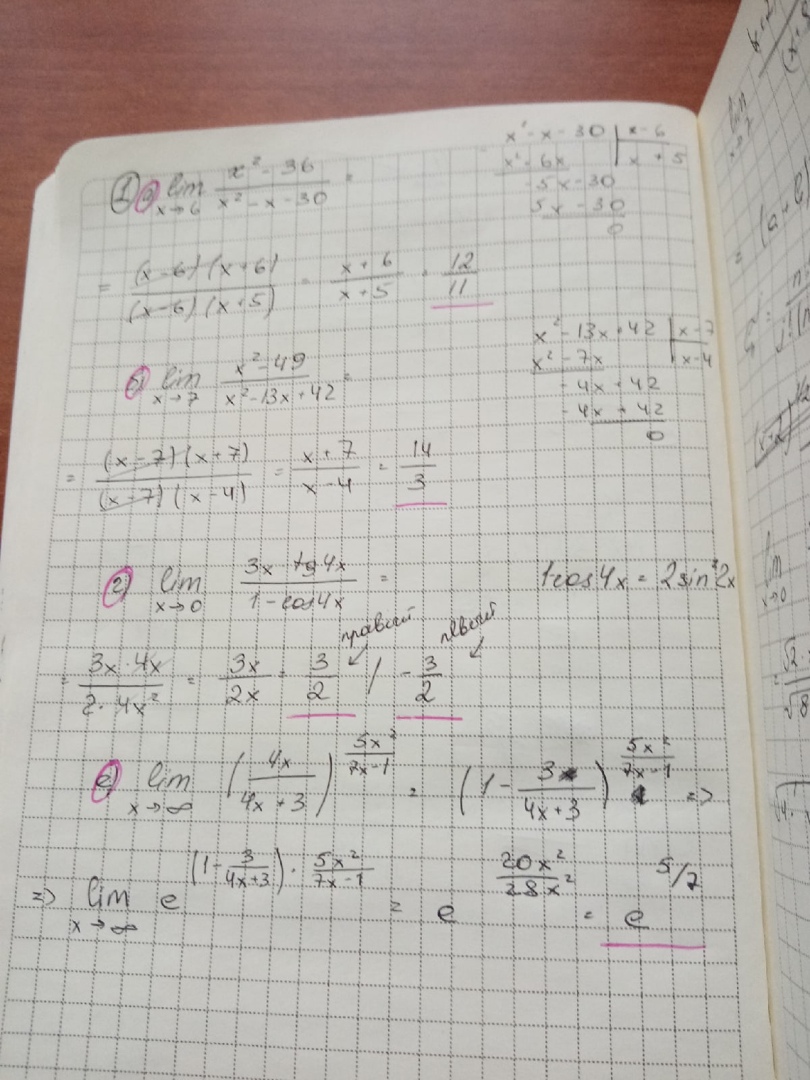 1 а) lim x→6 (x² - 36)/(x² - x - 30) =
x² - x - 30 | x - 6
x² - 6x | x + 5
5x - 30
5x - 30
0
= ((x-6)(x+6))/((x-6)(x+5)) = (x+6)/(x+5) = 12/11
б) lim x→7 (x² - 49)/(x² - 13x + 42) =
x² - 13x + 42 | x - 7
x² - 7x | x - 4
- 4x + 42
- 4x + 42
0
= ((x-7)(x+7))/((x-7)(x-4)) = (x+7)/(x-4) = 14/3
г) lim x→0 (3x tg4x)/(1 - cos4x) =
1-cos4x = 2sin²2x
правый левый
= (3x · 4x)/(2 · 4x²) = 3x/2x = 3/2 / - 3/2
е) lim x→∞ (4x/(4x+3))^(5x²/(7x-1)) = (1 - 3/(4x+3))^(5x²/(7x-1)) =>
=> lim x→∞ e^((1 - 3/(4x+3)) · 5x²/(7x-1)) = e^(20x²/28x²) = e^(5/7)